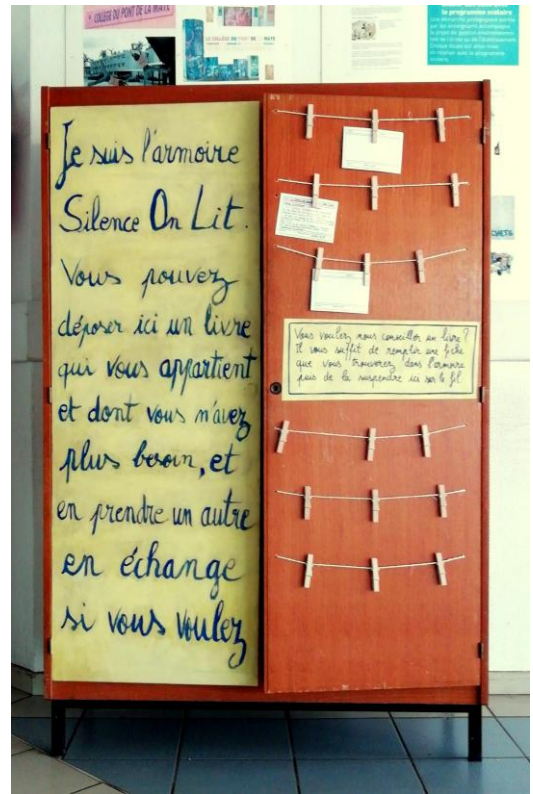 COLLEGE DU PONT DE LA MAYE
LE COLLÈGE PONT DE LA MAYE
le programme scolaire
Je suis l'armoire
Silence On Lit.
Vous pouvez
déposer ici un livre
qui vous appartient
et dont vous n'avez
plus besoin, et
en prendre un autre
en échange
si vous voulez
Vous voulez nous conseiller un livre ?
Il vous suffit de remplir une fiche
que vous trouverez dans l'armoire
puis de la suspendre ici sur le fil